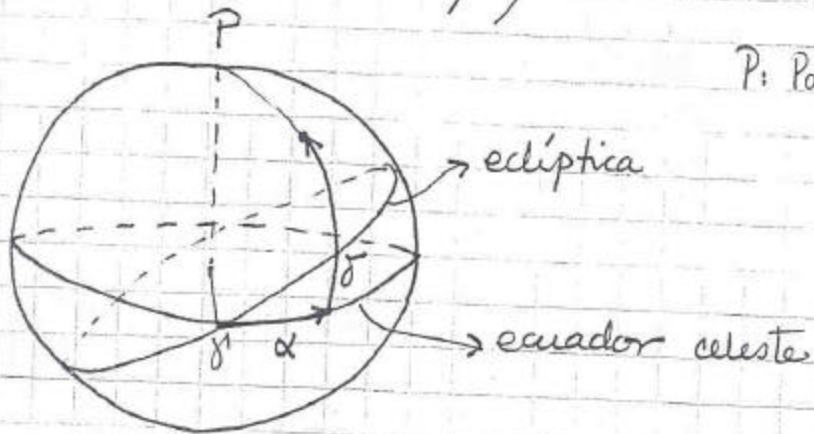 P
P: Po
eclíptica
δ
γ α
ecuador celeste